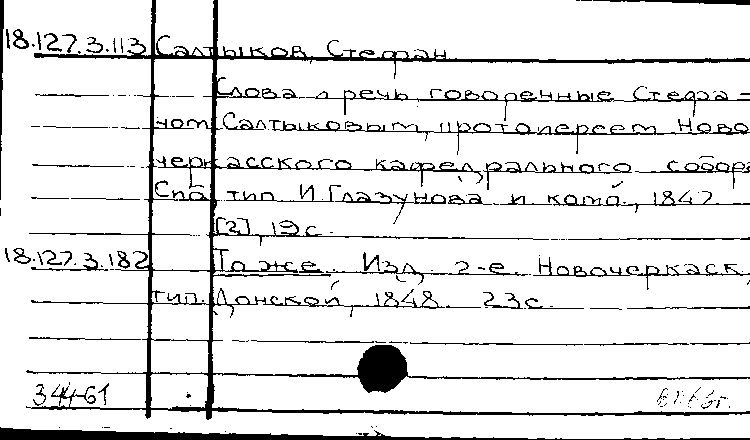 18.127.3.113 Салтыков, Стефан
Слова и речь, говоренные Стефа=
ном Салтыковым, протоиереем Ново
черкасского кафедрального собора
Спб, тип. И. Глазунова и комп., 1847.
[2], 19 с.
18.127.3.182 То же. Изд. 2-е. Новочеркаск,
тип. Донской, 1848. 23 с.
344-61